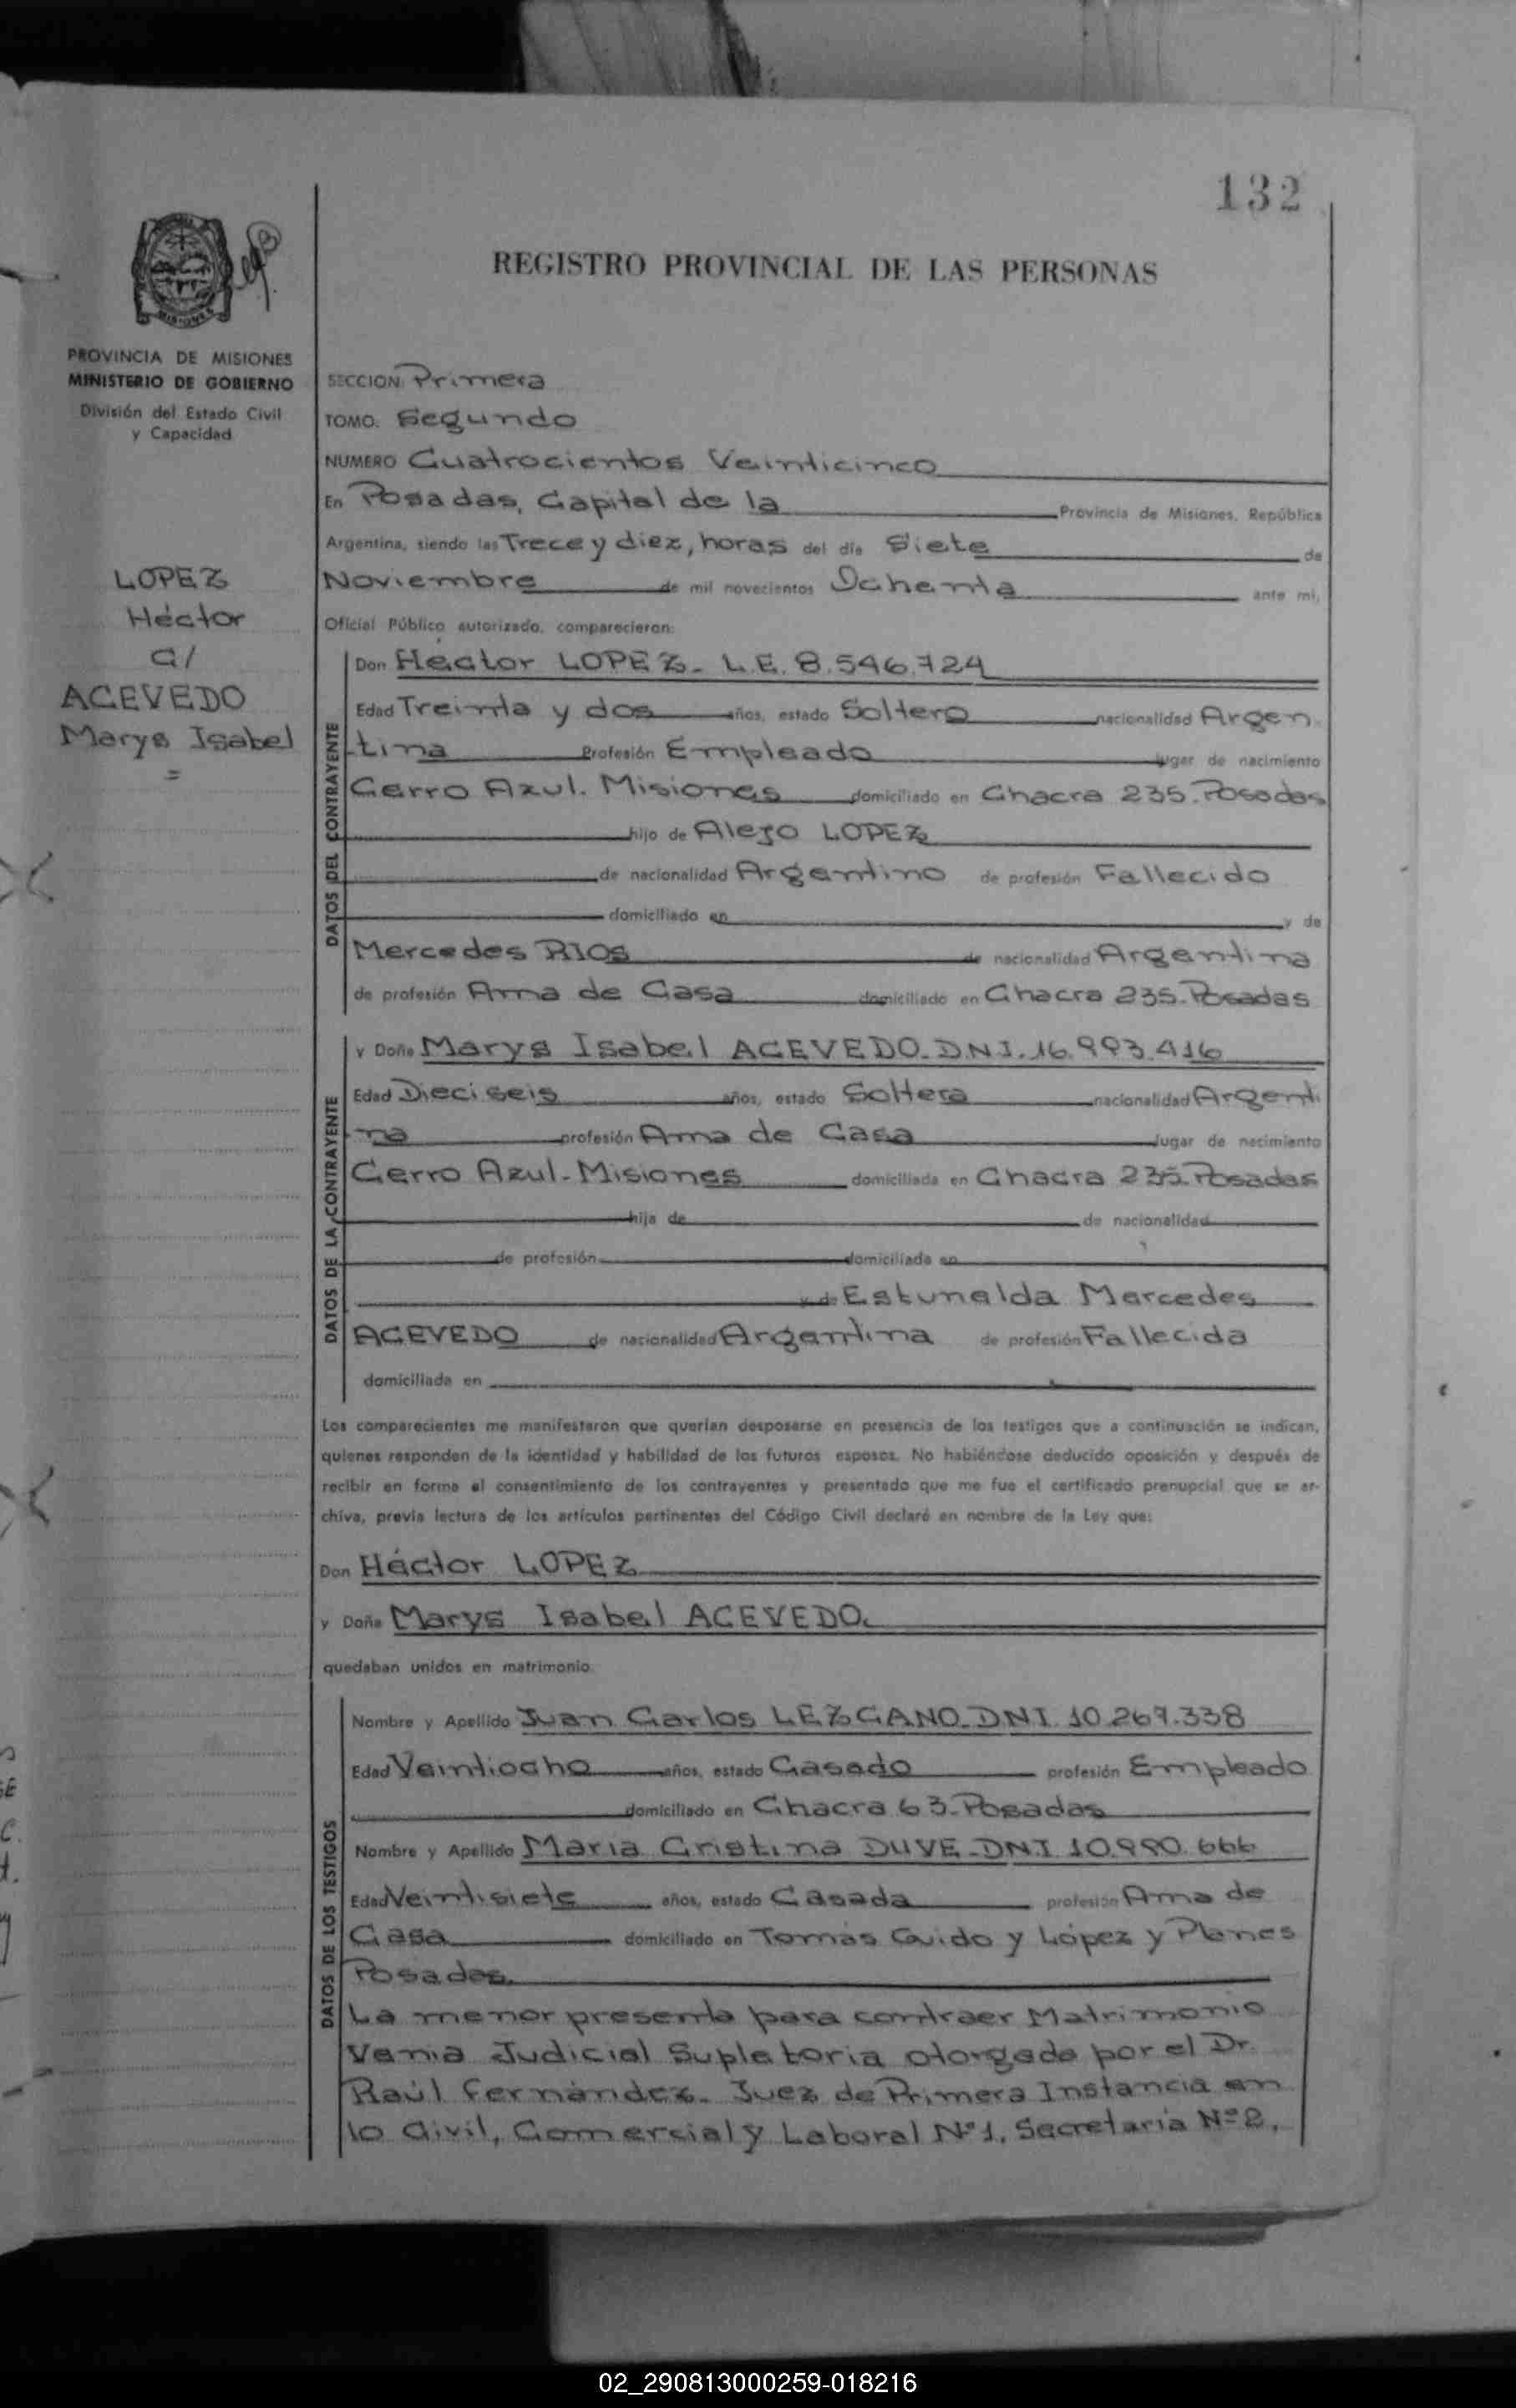 132
REGISTRO PROVINCIAL DE LAS PERSONAS
MISIONES
PROVINCIA DE MISIONES
MINISTERIO DE GOBIERNO
División del Estado Civil
y Capacidad
LOPEZ
Héctor
c/
ACEVEDO
Marys Isabel
=
SECCION: Primera
TOMO: Segundo
NUMERO Cuatrocientos Veinticinco
En Posadas, Capital de la Provincia de Misiones, República
Argentina, siendo las Trece y diez, horas del día Siete de
Noviembre de mil novecientos Ochenta ante mí,
Oficial Público autorizado, comparecieron:
DATOS DEL CONTRAYENTE
Don Héctor LOPEZ - L.E. 8.546.724
Edad Treinta y dos años, estado Soltero nacionalidad Argen
tina Profesión Empleado lugar de nacimiento
Cerro Azul. Misiones domiciliado en Chacra 235. Posadas
hijo de Alejo LOPEZ
de nacionalidad Argentino de profesión Fallecido
domiciliado en y de
Mercedes RIOS de nacionalidad Argentina
de profesión Ama de Casa domiciliado en Chacra 235. Posadas
DATOS DE LA CONTRAYENTE
y Doña Marys Isabel ACEVEDO. D.N.I. 16.993.416
Edad Dieciseis años, estado Soltera nacionalidad Argenti
na profesión Ama de Casa lugar de nacimiento
Cerro Azul - Misiones domiciliada en Chacra 235. Posadas
hija de de nacionalidad
de profesión domiciliada en
y de Estunalda Mercedes
ACEVEDO de nacionalidad Argentina de profesión Fallecida
domiciliada en
Los comparecientes me manifestaron que querían desposarse en presencia de los testigos que a continuación se indican,
quienes responden de la identidad y habilidad de los futuros esposos. No habiéndose deducido oposición y después de
recibir en forma el consentimiento de los contrayentes y presentado que me fue el certificado prenupcial que se ar-
chiva, previa lectura de los artículos pertinentes del Código Civil declaré en nombre de la Ley que:
Don Héctor LOPEZ
y Doña Marys Isabel ACEVEDO.
quedaban unidos en matrimonio.
DATOS DE LOS TESTIGOS
Nombre y Apellido Juan Carlos LEZCANO. DNI 10.267.338
Edad Veintiocho años, estado Casado profesión Empleado
domiciliado en Chacra 63. Posadas
Nombre y Apellido Maria Cristina DUVE. DNI 10.990.666
Edad Veintisiete años, estado Casada profesión Ama de
Casa domiciliado en Tomás Guido y López y Planes
Posadas.
La menor presenta para contraer Matrimonio
Venia Judicial Supletoria otorgada por el Dr.
Raúl Fernández. Juez de Primera Instancia en
lo Civil, Comercial y Laboral Nº1, Secretaría Nº2.
02_290813000259-018216